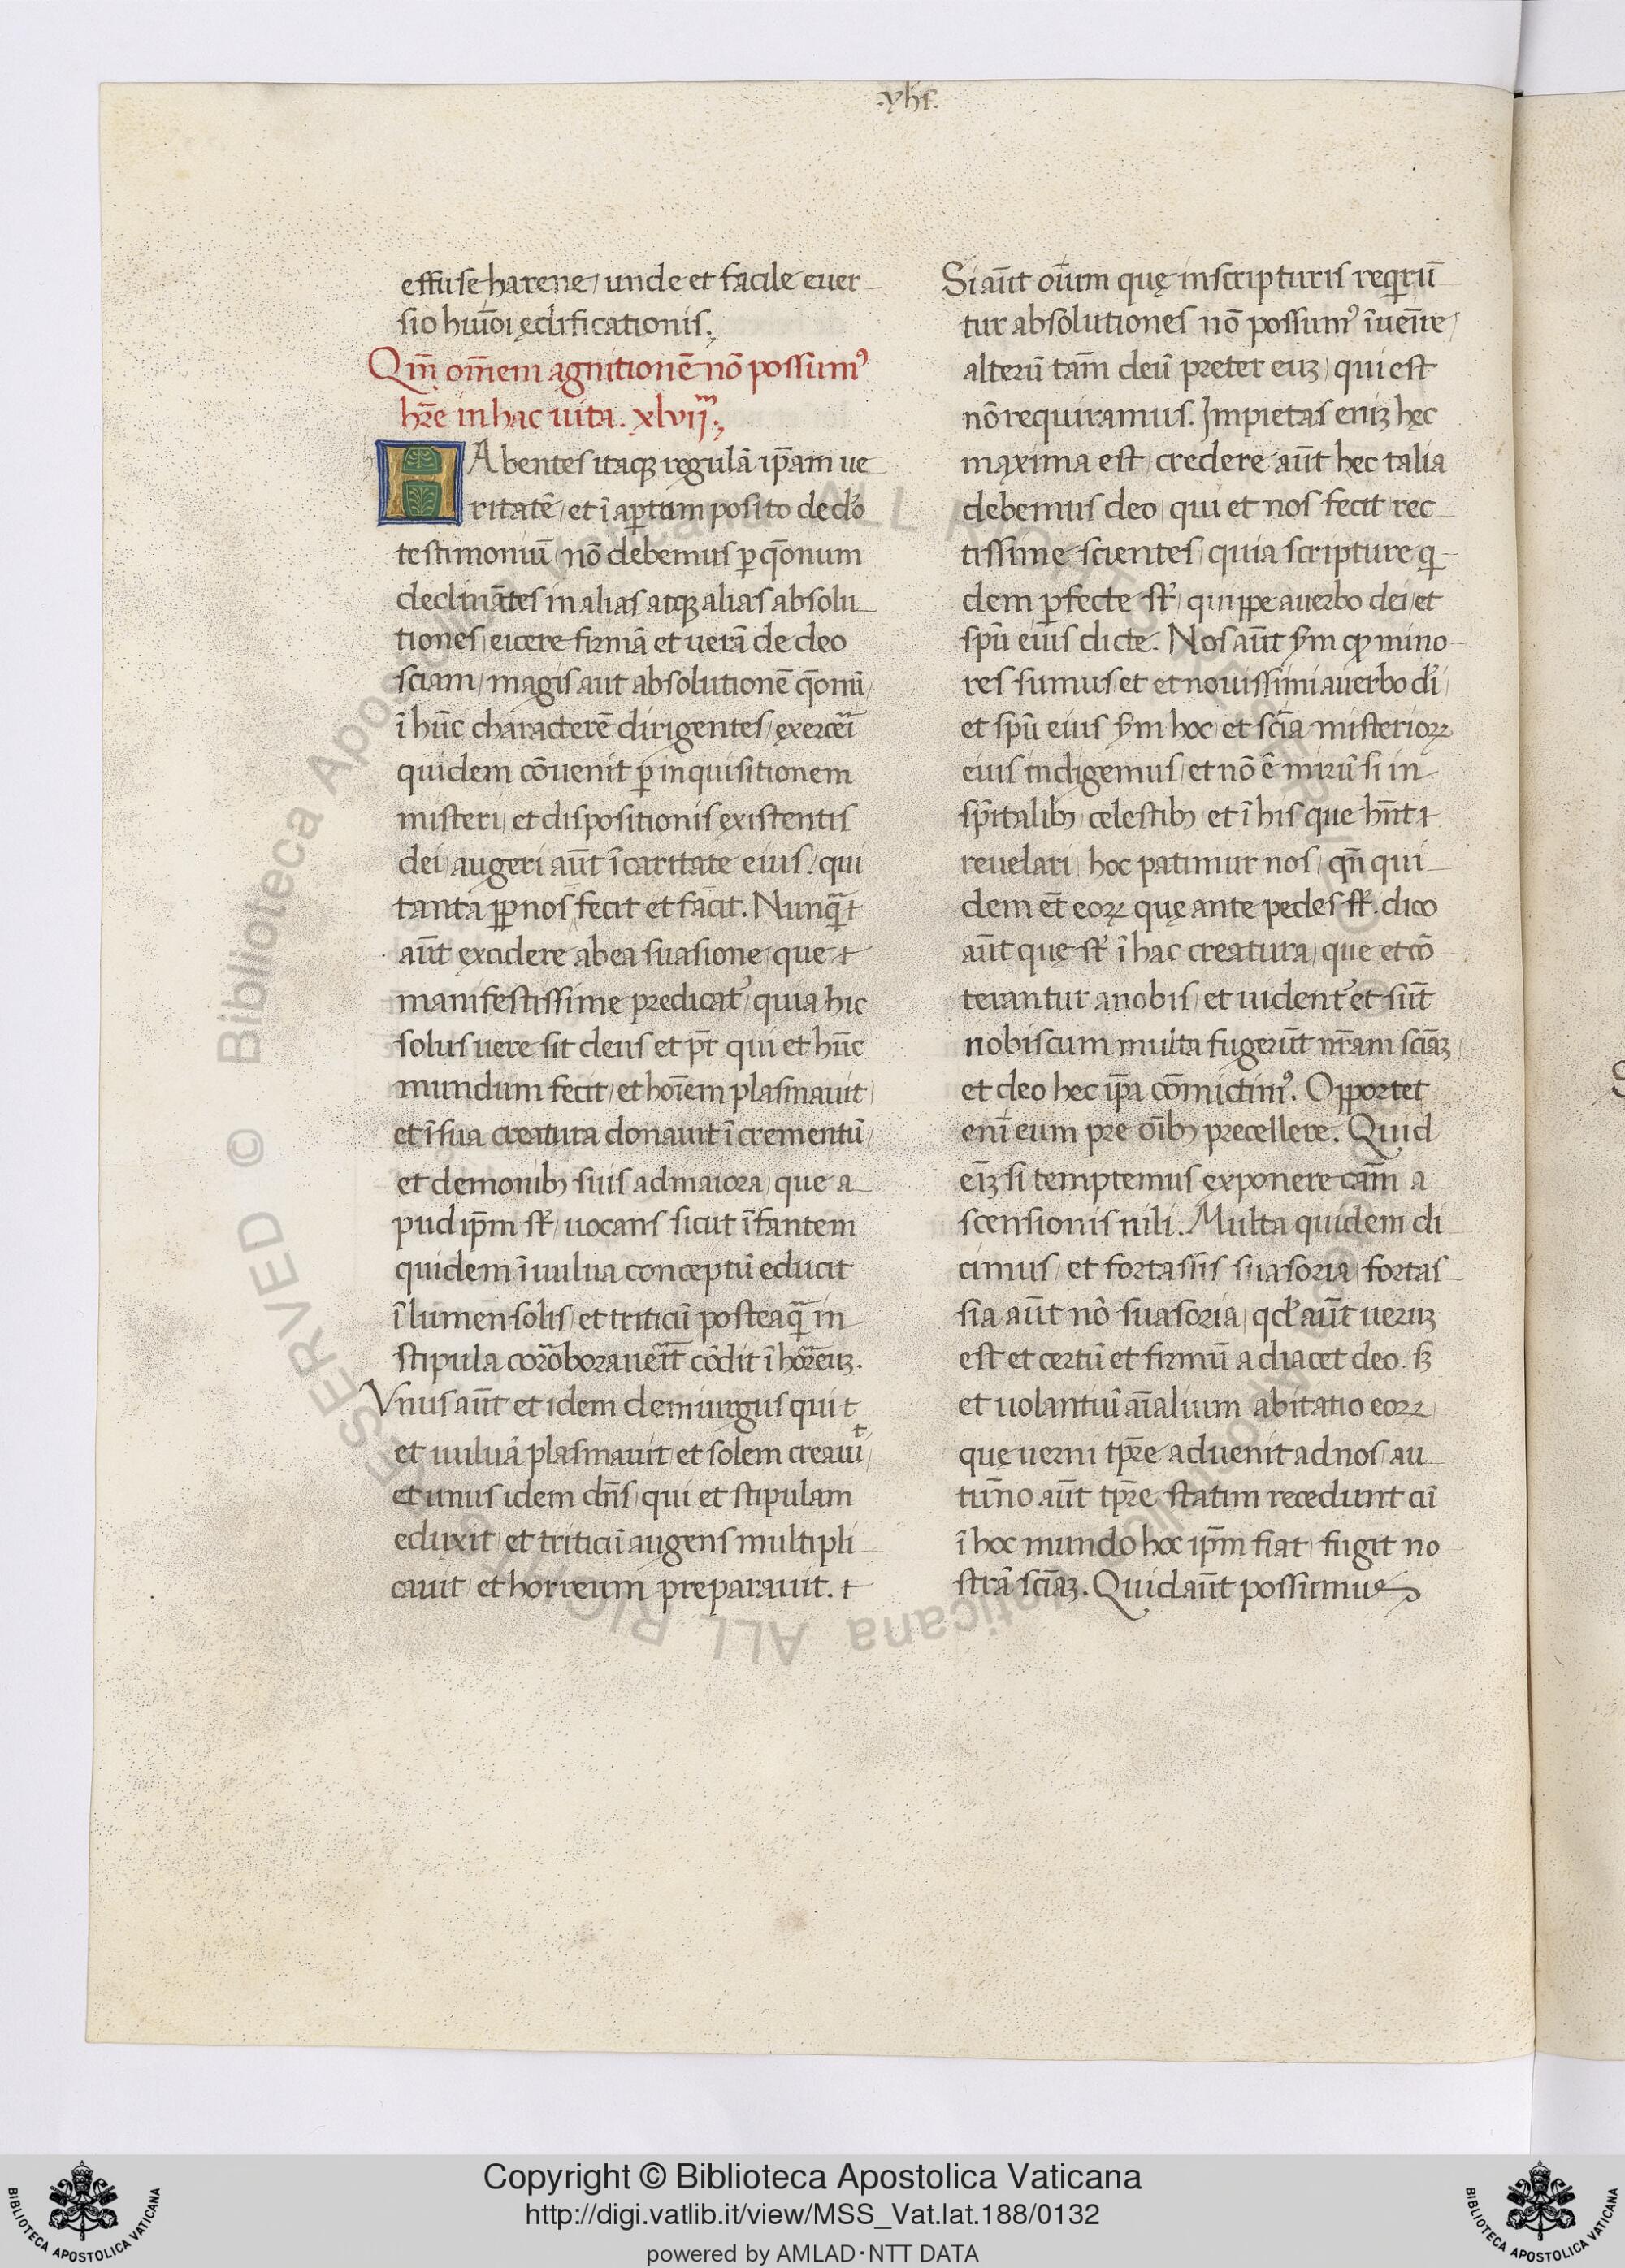 .yhs.
effuse harene / unde et facile euer
sio huiō̄i ędificationis;
Qm̄ om̄em agnitionē nō possum᾽
hr̄e in hac uita. xlvijᵐ;
HAbentes itaqꝫ regulā ip̄am ue
ritatē / et ī aꝑtum posito de do᾽
testimoniū / nō debemus ꝑ q̄onum
declinātes in alias atqꝫ alias absolu
tiones / eicere firmā et uerā de deo
sciam / magis aut absolutionē q̄onū /
ī hūc characterē dirigentes / exerceri
quidem cōuenit ꝑ inquisitionem
misteri / et dispositionis existentis
dei / augeri aūt ī caritate eius / qui
tanta ꝓp nos fecit et facit. Nunq̄
aūt excidere ab ea suasione / que
manifestissime predicat᾽ / quia hic
solus uere sit deus et pr̄ qui et hūc
mundum fecit / et hoīem plasmauit /
et ī sua creatura donauit īcrementū /
et de monibꝫ suis ad maiora / que a
pud ip̄m st᾽ / uocans sicut īfantem
quidem ī uulua conceptū educit
ī lumen solis / et triticū posteaq̄ in
stipula coroborauerīt cōdit ī horreuꝫ.
Vnus aūt et idem demiurgus qui
et uuluā plasmauit / et solem creauit /
et unus idem dn̄s / qui et stipulam
eduxit / et triticū augens multipli
cauit / et horreum preparauit.
Si aūt oīum quę in scripturis reqrū
tur absolutiones nō possum᾽ īuenīre /
alterū tam̄ deū preter euꝫ / qui est
nō requiramus. Impietas eniꝫ hęc
maxima est / credere aūt hec talia
debemus deo / qui et nos fecit rec
tissime scientes / quia scripture q
dem ꝑfecte st᾽ / quippe a uerbo dei / et
spū eius dicte. Nos aūt s̄m ꝙ mino
res sumus / et et nouissimi a uerbo di᾽ /
et spū eius s̄m hoc / et sciā misterioꝝ
eius indigemus / et nō ē mirū si in
sp̄italibꝫ celestibꝫ et ī his que hn̄t
reuelari / hoc patimur nos / qn̄ qui
dem et̄ eoꝝ quę ante pedes st᾽. dico
aūt quę st᾽ ī hac creatura / que et cō
terantur a nobis / et uident᾽ et sūt
nobiscum multa fugerūt nr̄am sciāꝫ /
et deo hec ip̄a cōmictim᾽. Opportet
enī eum pre oībꝫ precellere. Quid
eīꝫ si temptemus exponere cam̄ a
scensionis nili. Multa quidem di
cimus / et fortassis suasoria / fortas
sia aūt nō suasoria / qd᾽ aūt ueruꝫ
est et certū et firmū adiacet deo. sꝫ
et uolantiū aīalium abitatio eoꝝ /
quę uerni tp̄re aduenit ad nos / au
tūno aūt tp̄re statim recedunt cū
ī hoc mundo hoc ip̄m fiat / fugit no
strā sciāꝫ. Quid aūt possumus
© Biblioteca Apostolica Vaticana ALL RIGHTS RESERVED
Copyright © Biblioteca Apostolica Vaticana
http://digi.vatlib.it/view/MSS_Vat.lat.188/0132
powered by AMLAD·NTT DATA
BIBLIOTECA APOSTOLICA VATICANA
BIBLIOTECA APOSTOLICA VATICANA